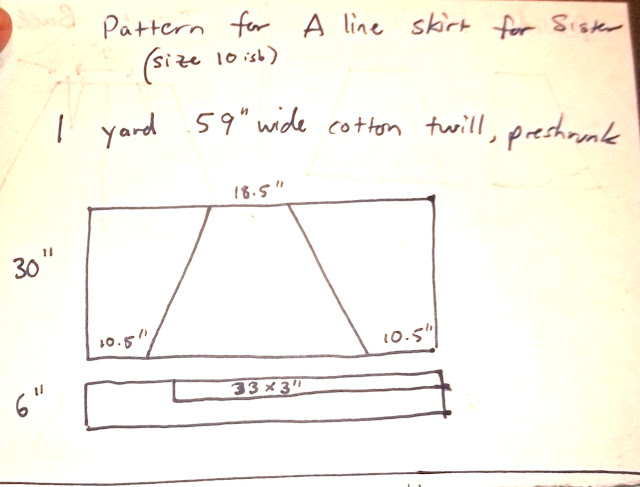 Pattern for A line skirt for Sister
(size 10 ish)
1 yard 59" wide cotton twill, preshrunk
18.5"
30"
10.5" 10.5"
33 x 3"
6"